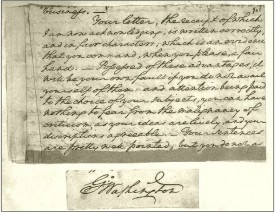 business. —
Your letter, the receipt of which
I am now acknowledging, is written correctly
and in fair characters, which is an evidence
that you command, when you please, a fair
hand. Possessed of these advantages, it
will be your own fault if you do not avail
yourself of them, and attention being paid
to the choice of your subjects, you can have
nothing to fear from the malignancy of
criticism, as your ideas are lively, and your
descriptions agreeable. Your sentences
are pretty well pointed, but you do not as
G:Washington